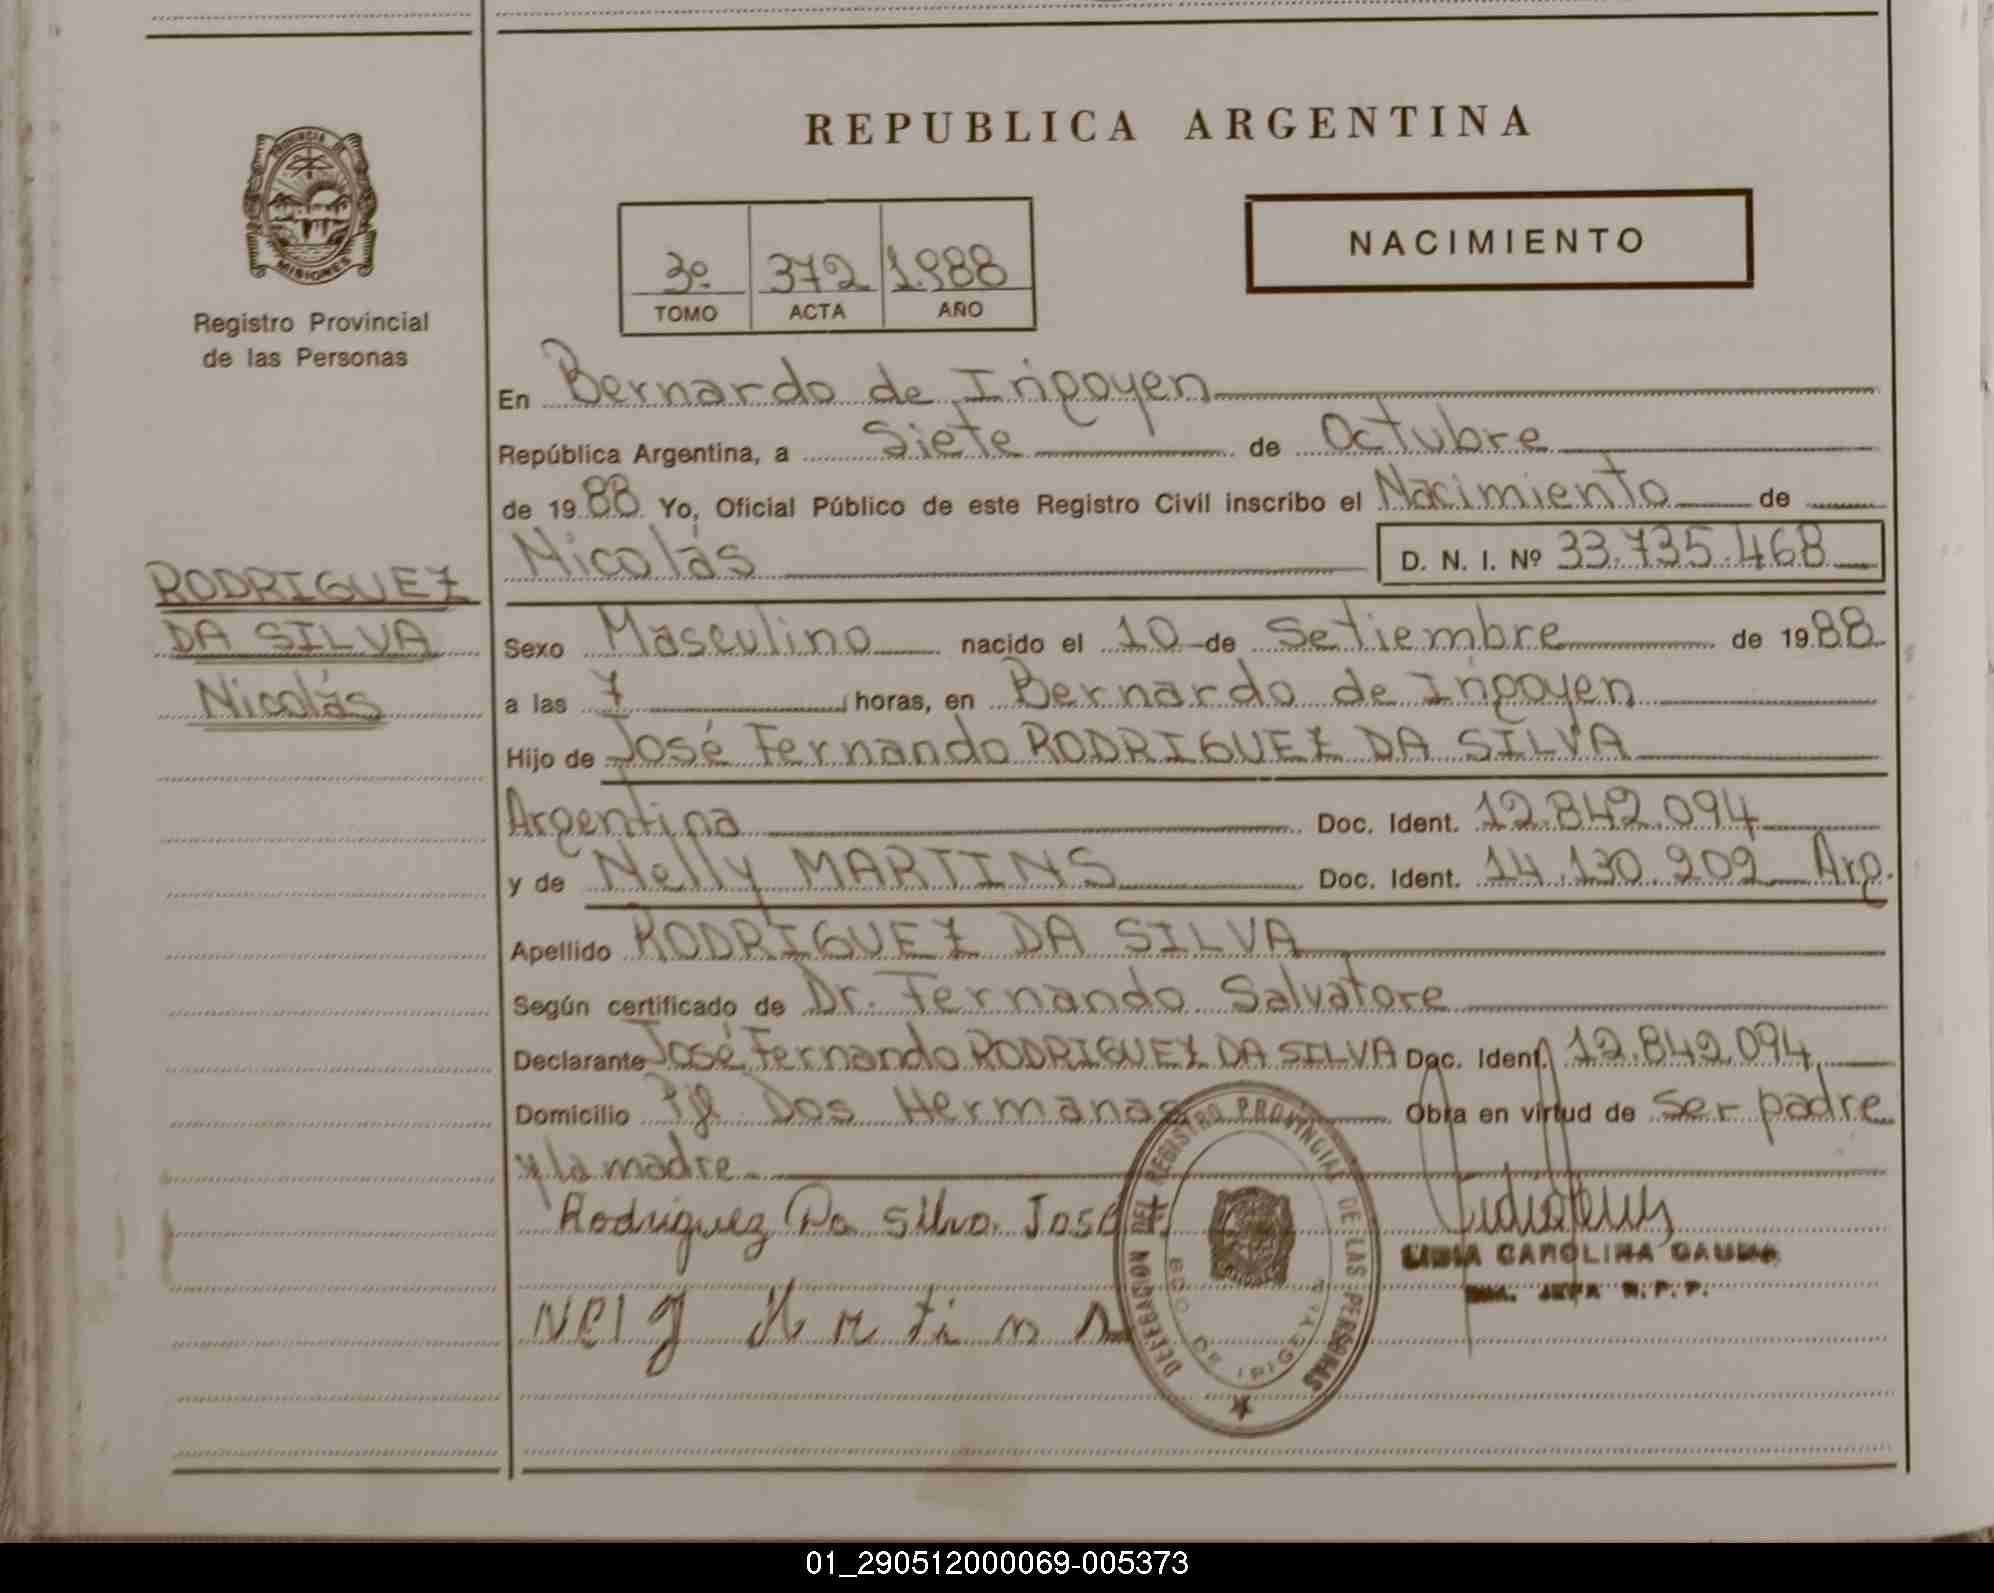 REPUBLICA ARGENTINA
PROVINCIA DE
MISIONES
Registro Provincial
de las Personas
NACIMIENTO
3º 372 1.988
TOMO ACTA AÑO
En Bernardo de Irigoyen
República Argentina, a Siete de Octubre
de 1988 Yo, Oficial Público de este Registro Civil inscribo el Nacimiento de
Nicolás D. N. I. Nº 33.735.468
RODRIGUEZ
DA SILVA
Nicolás
Sexo Masculino nacido el 10 de Setiembre de 1988
a las 7 horas, en Bernardo de Irigoyen
Hijo de José Fernando RODRIGUEZ DA SILVA
Argentina Doc. Ident. 12.842.094
y de Nelly MARTINS Doc. Ident. 14.130.909 Arg.
Apellido RODRIGUEZ DA SILVA
Según certificado de Dr. Fernando Salvatore
Declarante José Fernando RODRIGUEZ DA SILVA Doc. Ident. 12.842.094
Domicilio Pje Dos Hermanas Obra en virtud de ser padre
y la madre
Rodriguez Da Silva José
DELEGACION DEL REGISTRO PROVINCIAL DE LAS PERSONAS
BDO DE IRIGOYEN
LIDIA CAROLINA
JEFA R.P.P.
Nely Martins
01_290512000069-005373